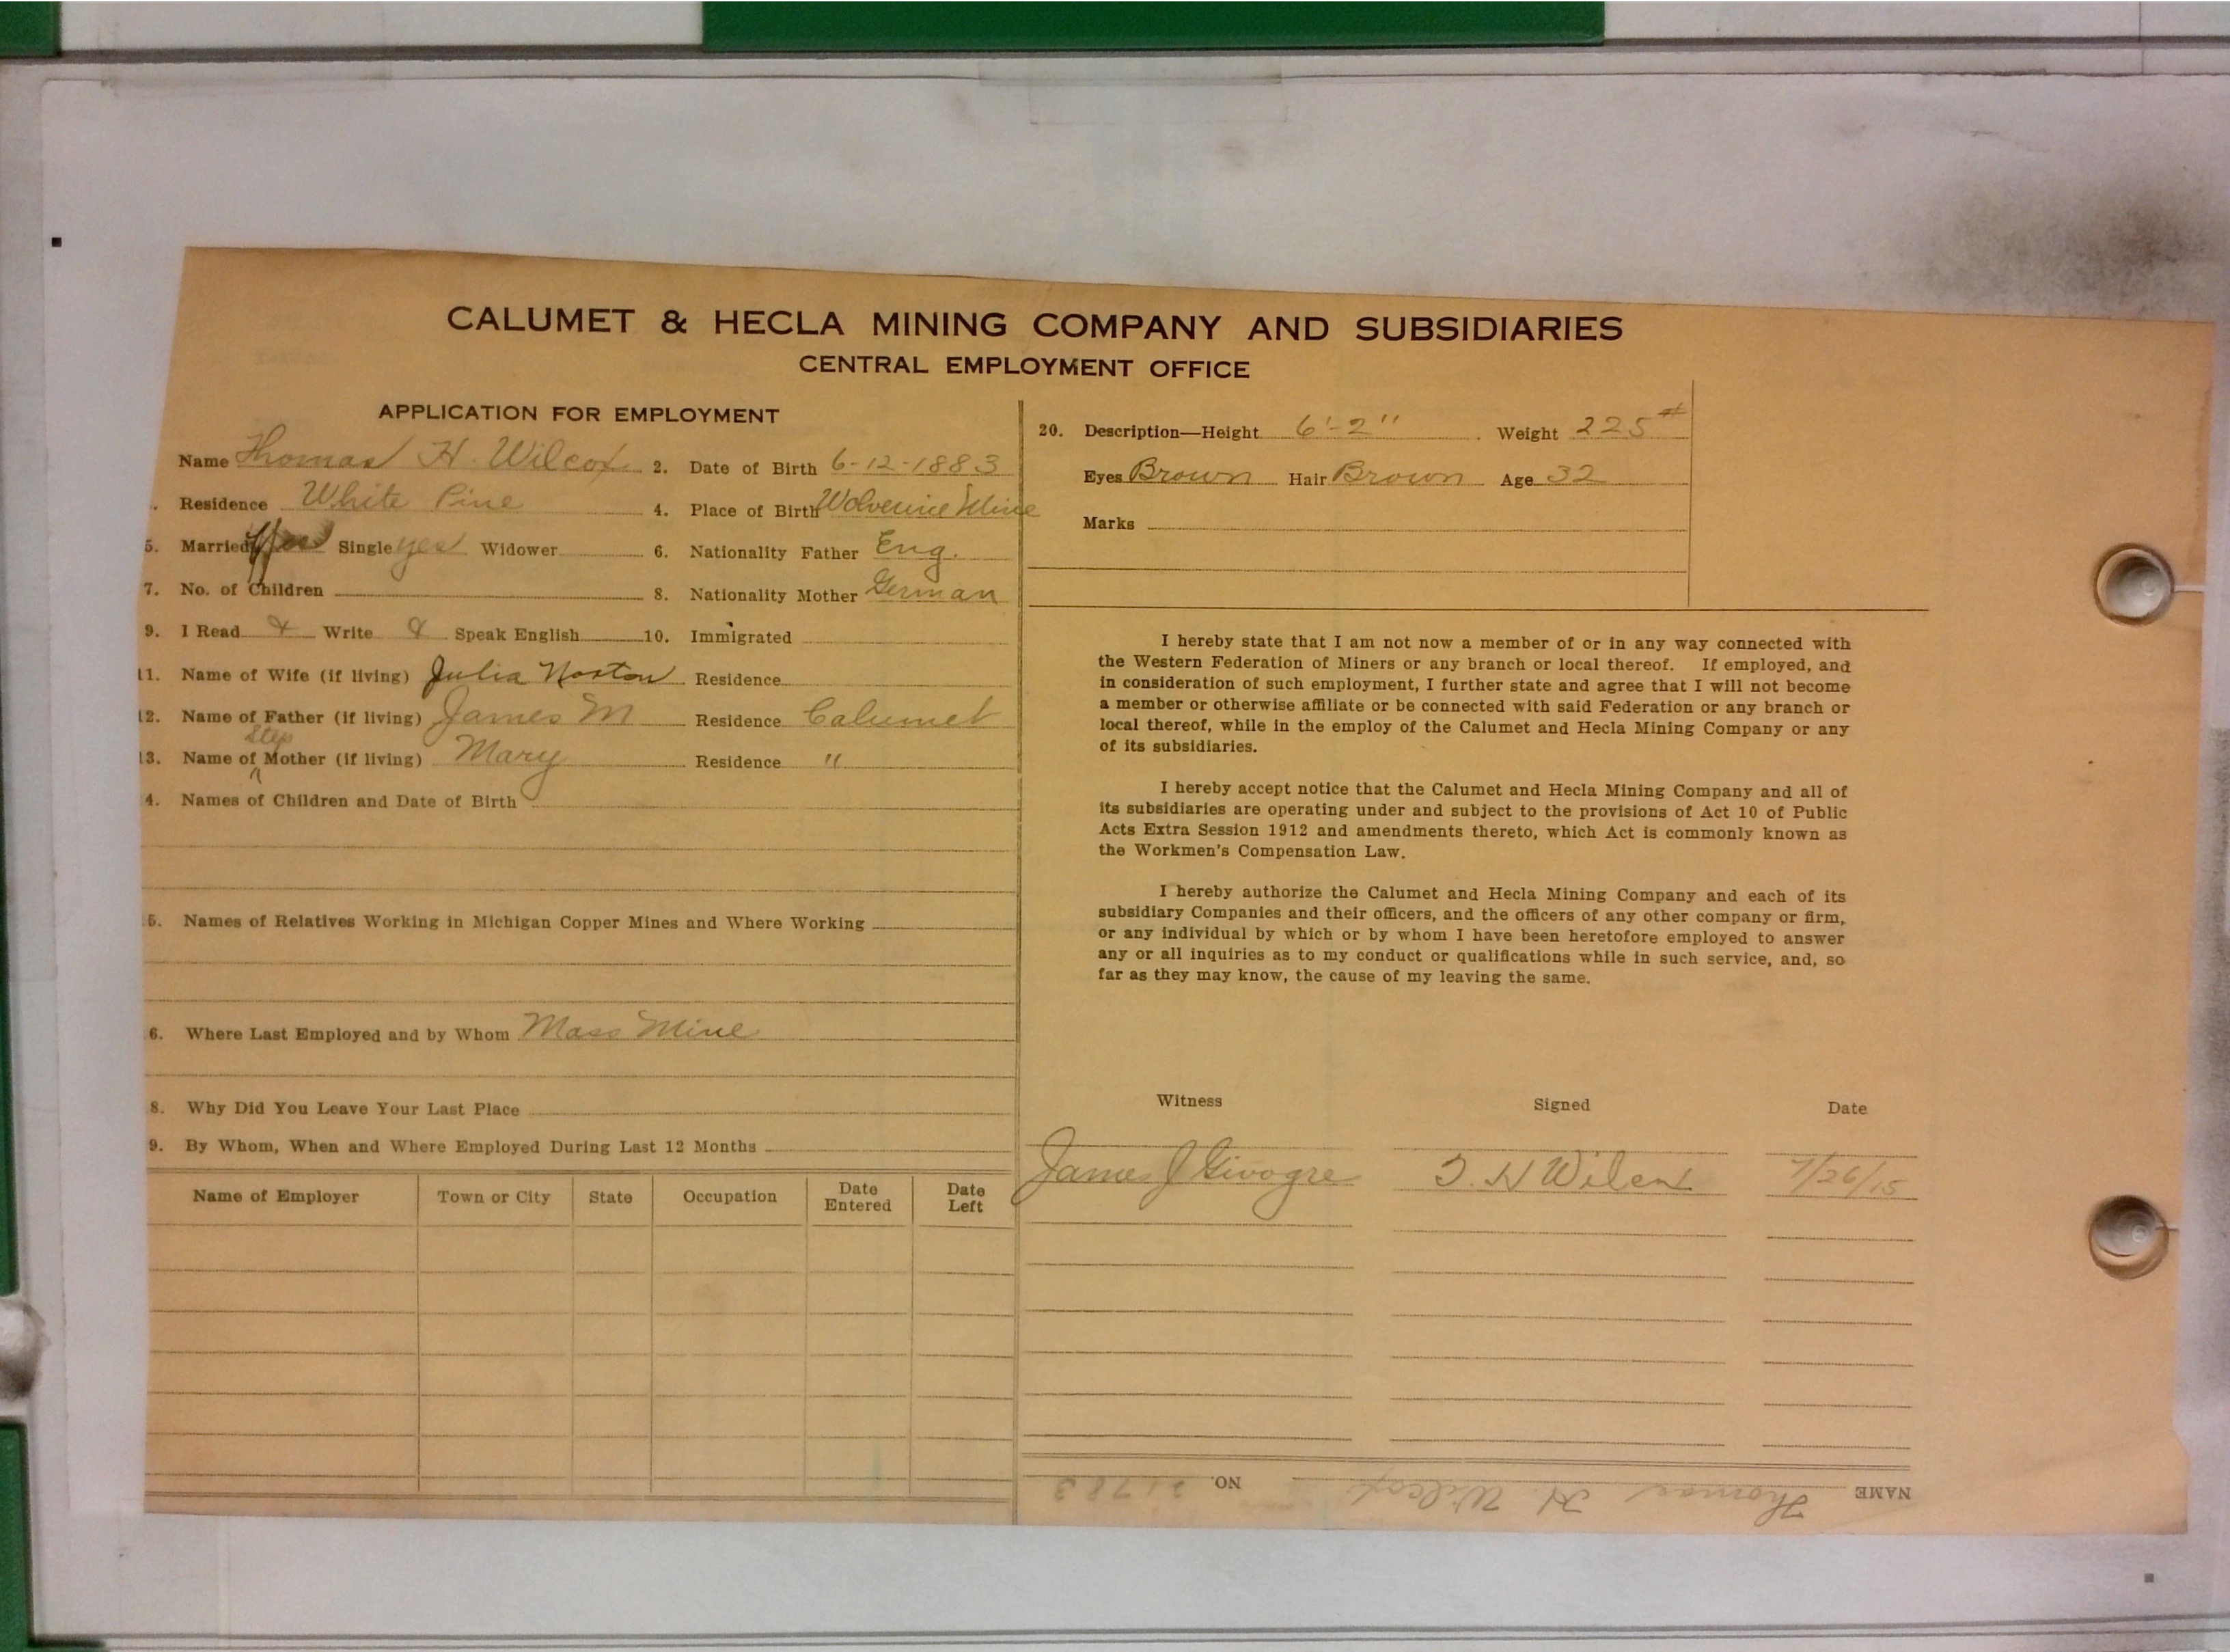 CALUMET & HECLA MINING COMPANY AND SUBSIDIARIES
CENTRAL EMPLOYMENT OFFICE
APPLICATION FOR EMPLOYMENT
Name Thomas H. Wilcox 2. Date of Birth 6-12-1883
. Residence White Pine 4. Place of Birth Wolverine Mine
5. Married Yes Single yes Widower 6. Nationality Father Eng.
7. No. of Children 8. Nationality Mother German
9. I Read & Write & Speak English 10. Immigrated
11. Name of Wife (if living) Julia Norton Residence
12. Name of Father (if living) James M Residence Calumet
Step
13. Name of Mother (if living) Mary Residence "
4. Names of Children and Date of Birth
5. Names of Relatives Working in Michigan Copper Mines and Where Working
6. Where Last Employed and by Whom Mass Mine
8. Why Did You Leave Your Last Place
9. By Whom, When and Where Employed During Last 12 Months
Name of Employer Town or City State Occupation Date Entered Date Left
20. Description—Height 6'-2" Weight 225#
Eyes Brown Hair Brown Age 32
Marks
I hereby state that I am not now a member of or in any way connected with
the Western Federation of Miners or any branch or local thereof. If employed, and
in consideration of such employment, I further state and agree that I will not become
a member or otherwise affiliate or be connected with said Federation or any branch or
local thereof, while in the employ of the Calumet and Hecla Mining Company or any
of its subsidiaries.
I hereby accept notice that the Calumet and Hecla Mining Company and all of
its subsidiaries are operating under and subject to the provisions of Act 10 of Public
Acts Extra Session 1912 and amendments thereto, which Act is commonly known as
the Workmen's Compensation Law.
I hereby authorize the Calumet and Hecla Mining Company and each of its
subsidiary Companies and their officers, and the officers of any other company or firm,
or any individual by which or by whom I have been heretofore employed to answer
any or all inquiries as to my conduct or qualifications while in such service, and, so
far as they may know, the cause of my leaving the same.
Witness Signed Date
James J Givogre T. H Wilcox 7/26/15
NAME Thomas H. Wilcox NO. 21783